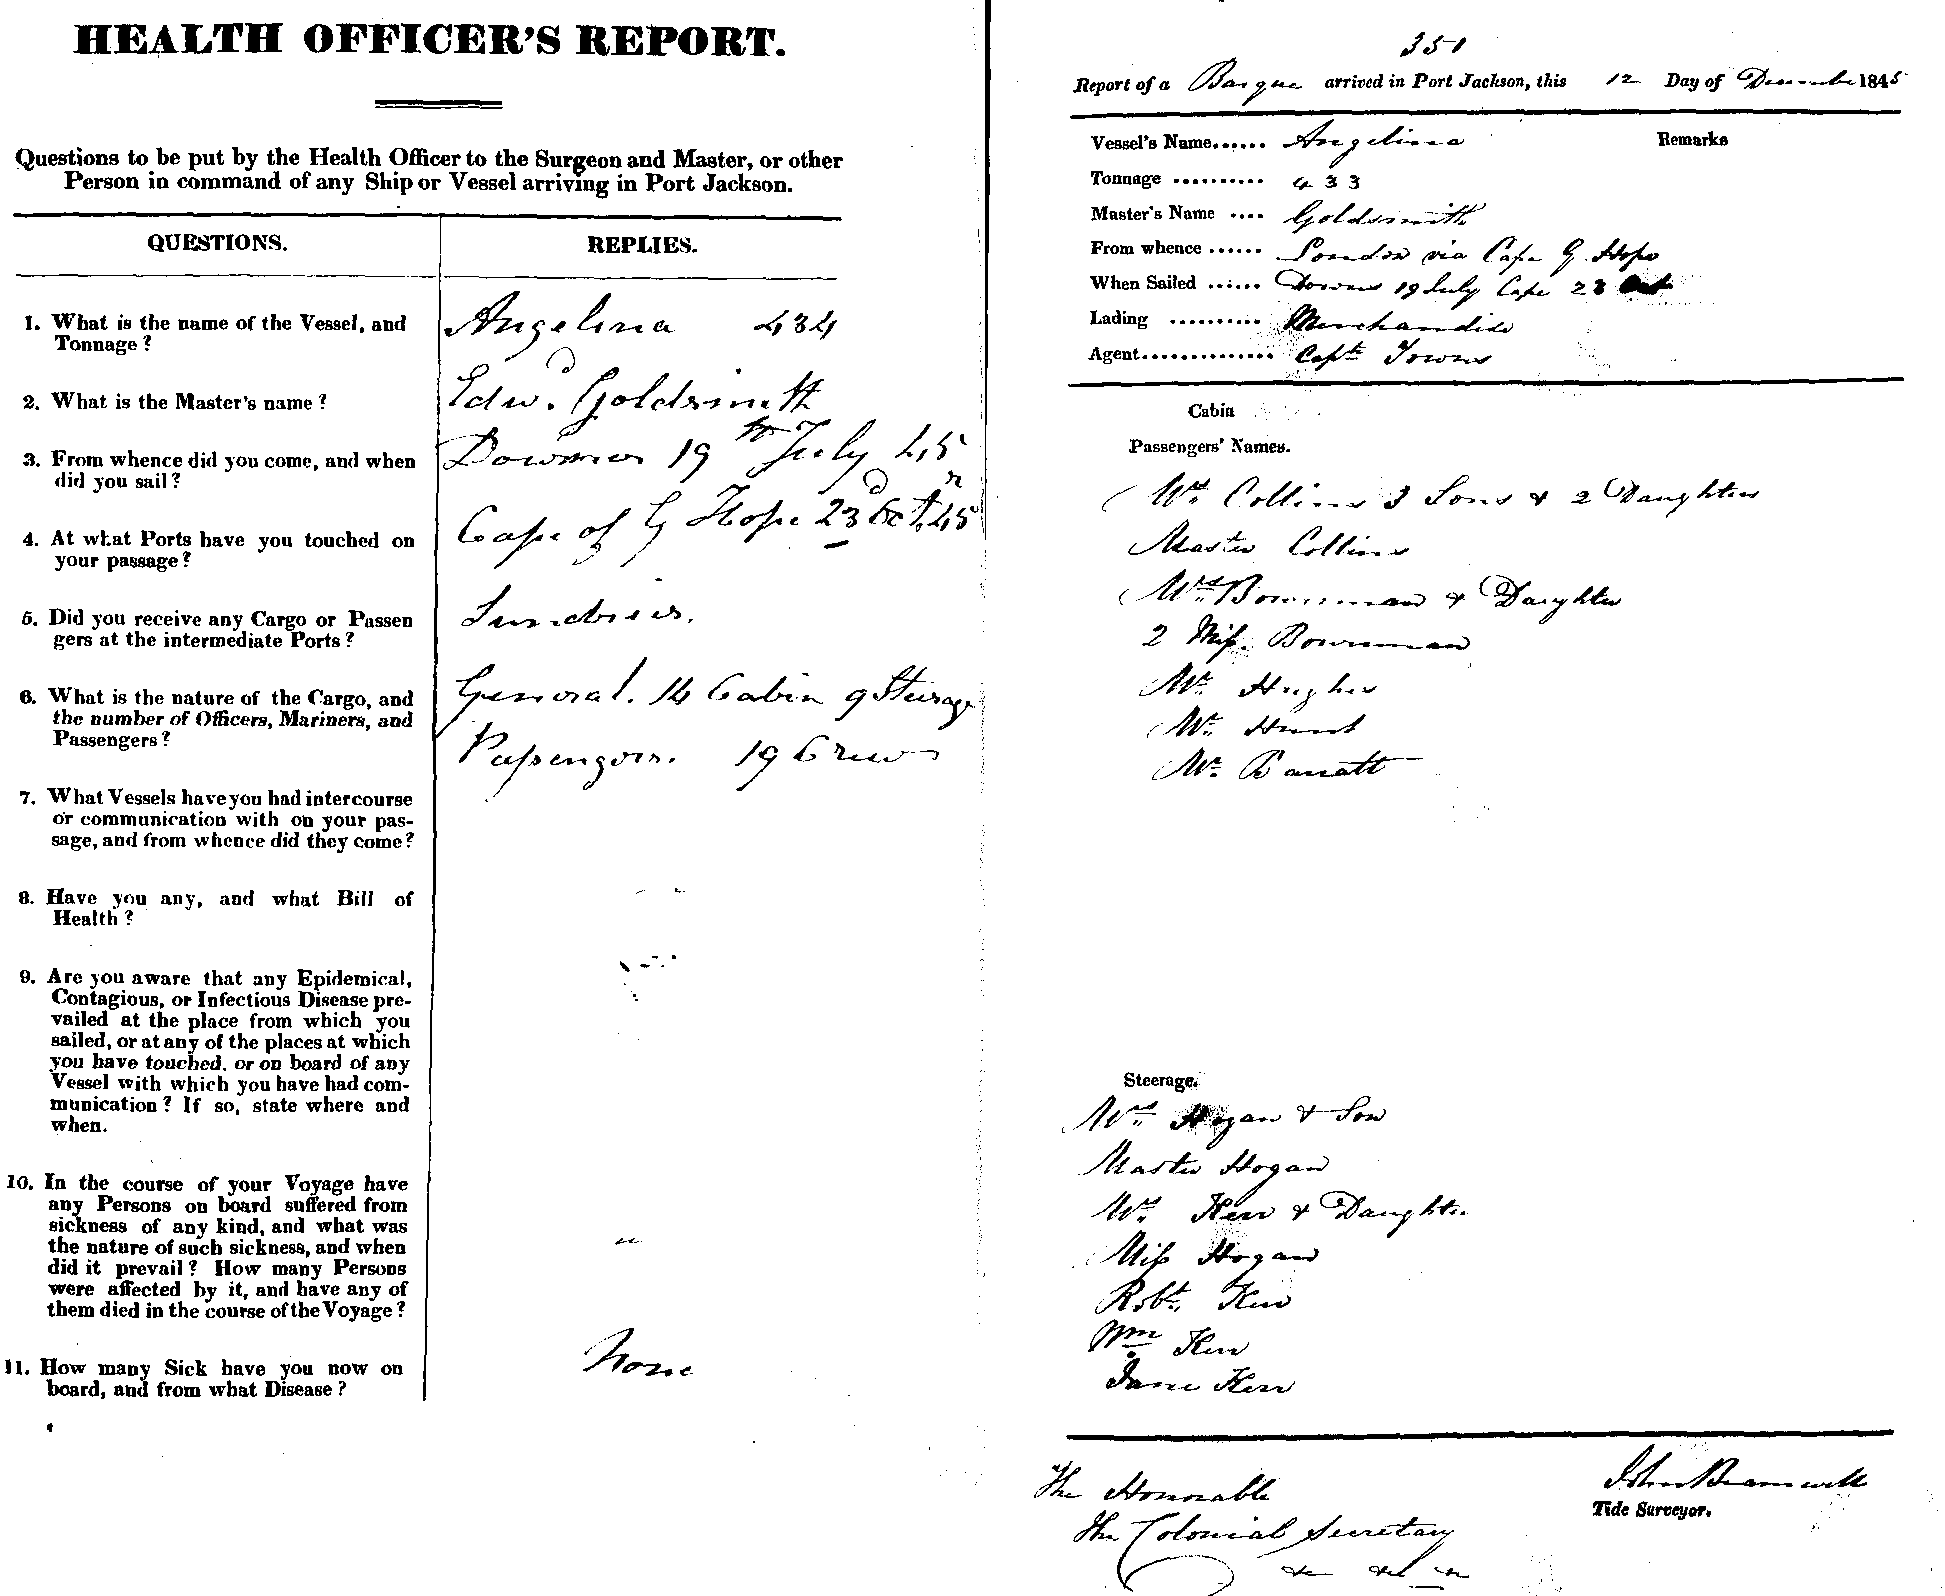 HEALTH OFFICER'S REPORT.
Questions to be put by the Health Officer to the Surgeon and Master, or other
Person in command of any Ship or Vessel arriving in Port Jackson.
QUESTIONS.
REPLIES.
1. What is the name of the Vessel, and
Tonnage ?
Angelina 434
2. What is the Master's name ?
Edwd. Goldsmith
3. From whence did you come, and when
did you sail ?
19th July 45
4. At what Ports have you touched on
your passage ?
Cape of G Hope 23d Oct. 45
5. Did you receive any Cargo or Passen
gers at the intermediate Ports ?
Sundries.
6. What is the nature of the Cargo, and
the number of Officers, Mariners, and
Passengers ?
General. 14 Cabin 9 Steerage
Passengers. 19 Crew
7. What Vessels have you had intercourse
or communication with on your pas-
sage, and from whence did they come?
8. Have you any, and what Bill of
Health ?
9. Are you aware that any Epidemical,
Contagious, or Infectious Disease pre-
vailed at the place from which you
sailed, or at any of the places at which
you have touched, or on board of any
Vessel with which you have had com-
munication ? If so, state where and
when.
10. In the course of your Voyage have
any Persons on board suffered from
sickness of any kind, and what was
the nature of such sickness, and when
did it prevail ? How many Persons
were affected by it, and have any of
them died in the course of the Voyage ?
11. How many Sick have you now on
board, and from what Disease ?
None
351
Report of a Barque arrived in Port Jackson, this 12 Day of December 1845
Vessel's Name...... Angelina
Remarks
Tonnage .......... 433
Master's Name .... Goldsmith
From whence ...... London via Cape G. Hope
When Sailed ...... Downs 19 July Cape 23 Oct
Lading .......... Merchandise
Agent.............. Captn Towns
Cabin
Passengers' Names.
Mrs. Collins 3 Sons & 2 Daughters
Master Collins
Mrs. Bowerman & Daughter
2 Miss. Bowerman
Mr. Hughes
Mr. Hunt
Mr. Barratt
Steerage.
Mrs. Hogan & Son
Master Hogan
Mrs. Kerr & Daughter
Miss Hogan
Robt. Kerr
Wm Kerr
Jane Kerr
John Bramwell
Tide Surveyor.
The Honorable
The Colonial Secretary